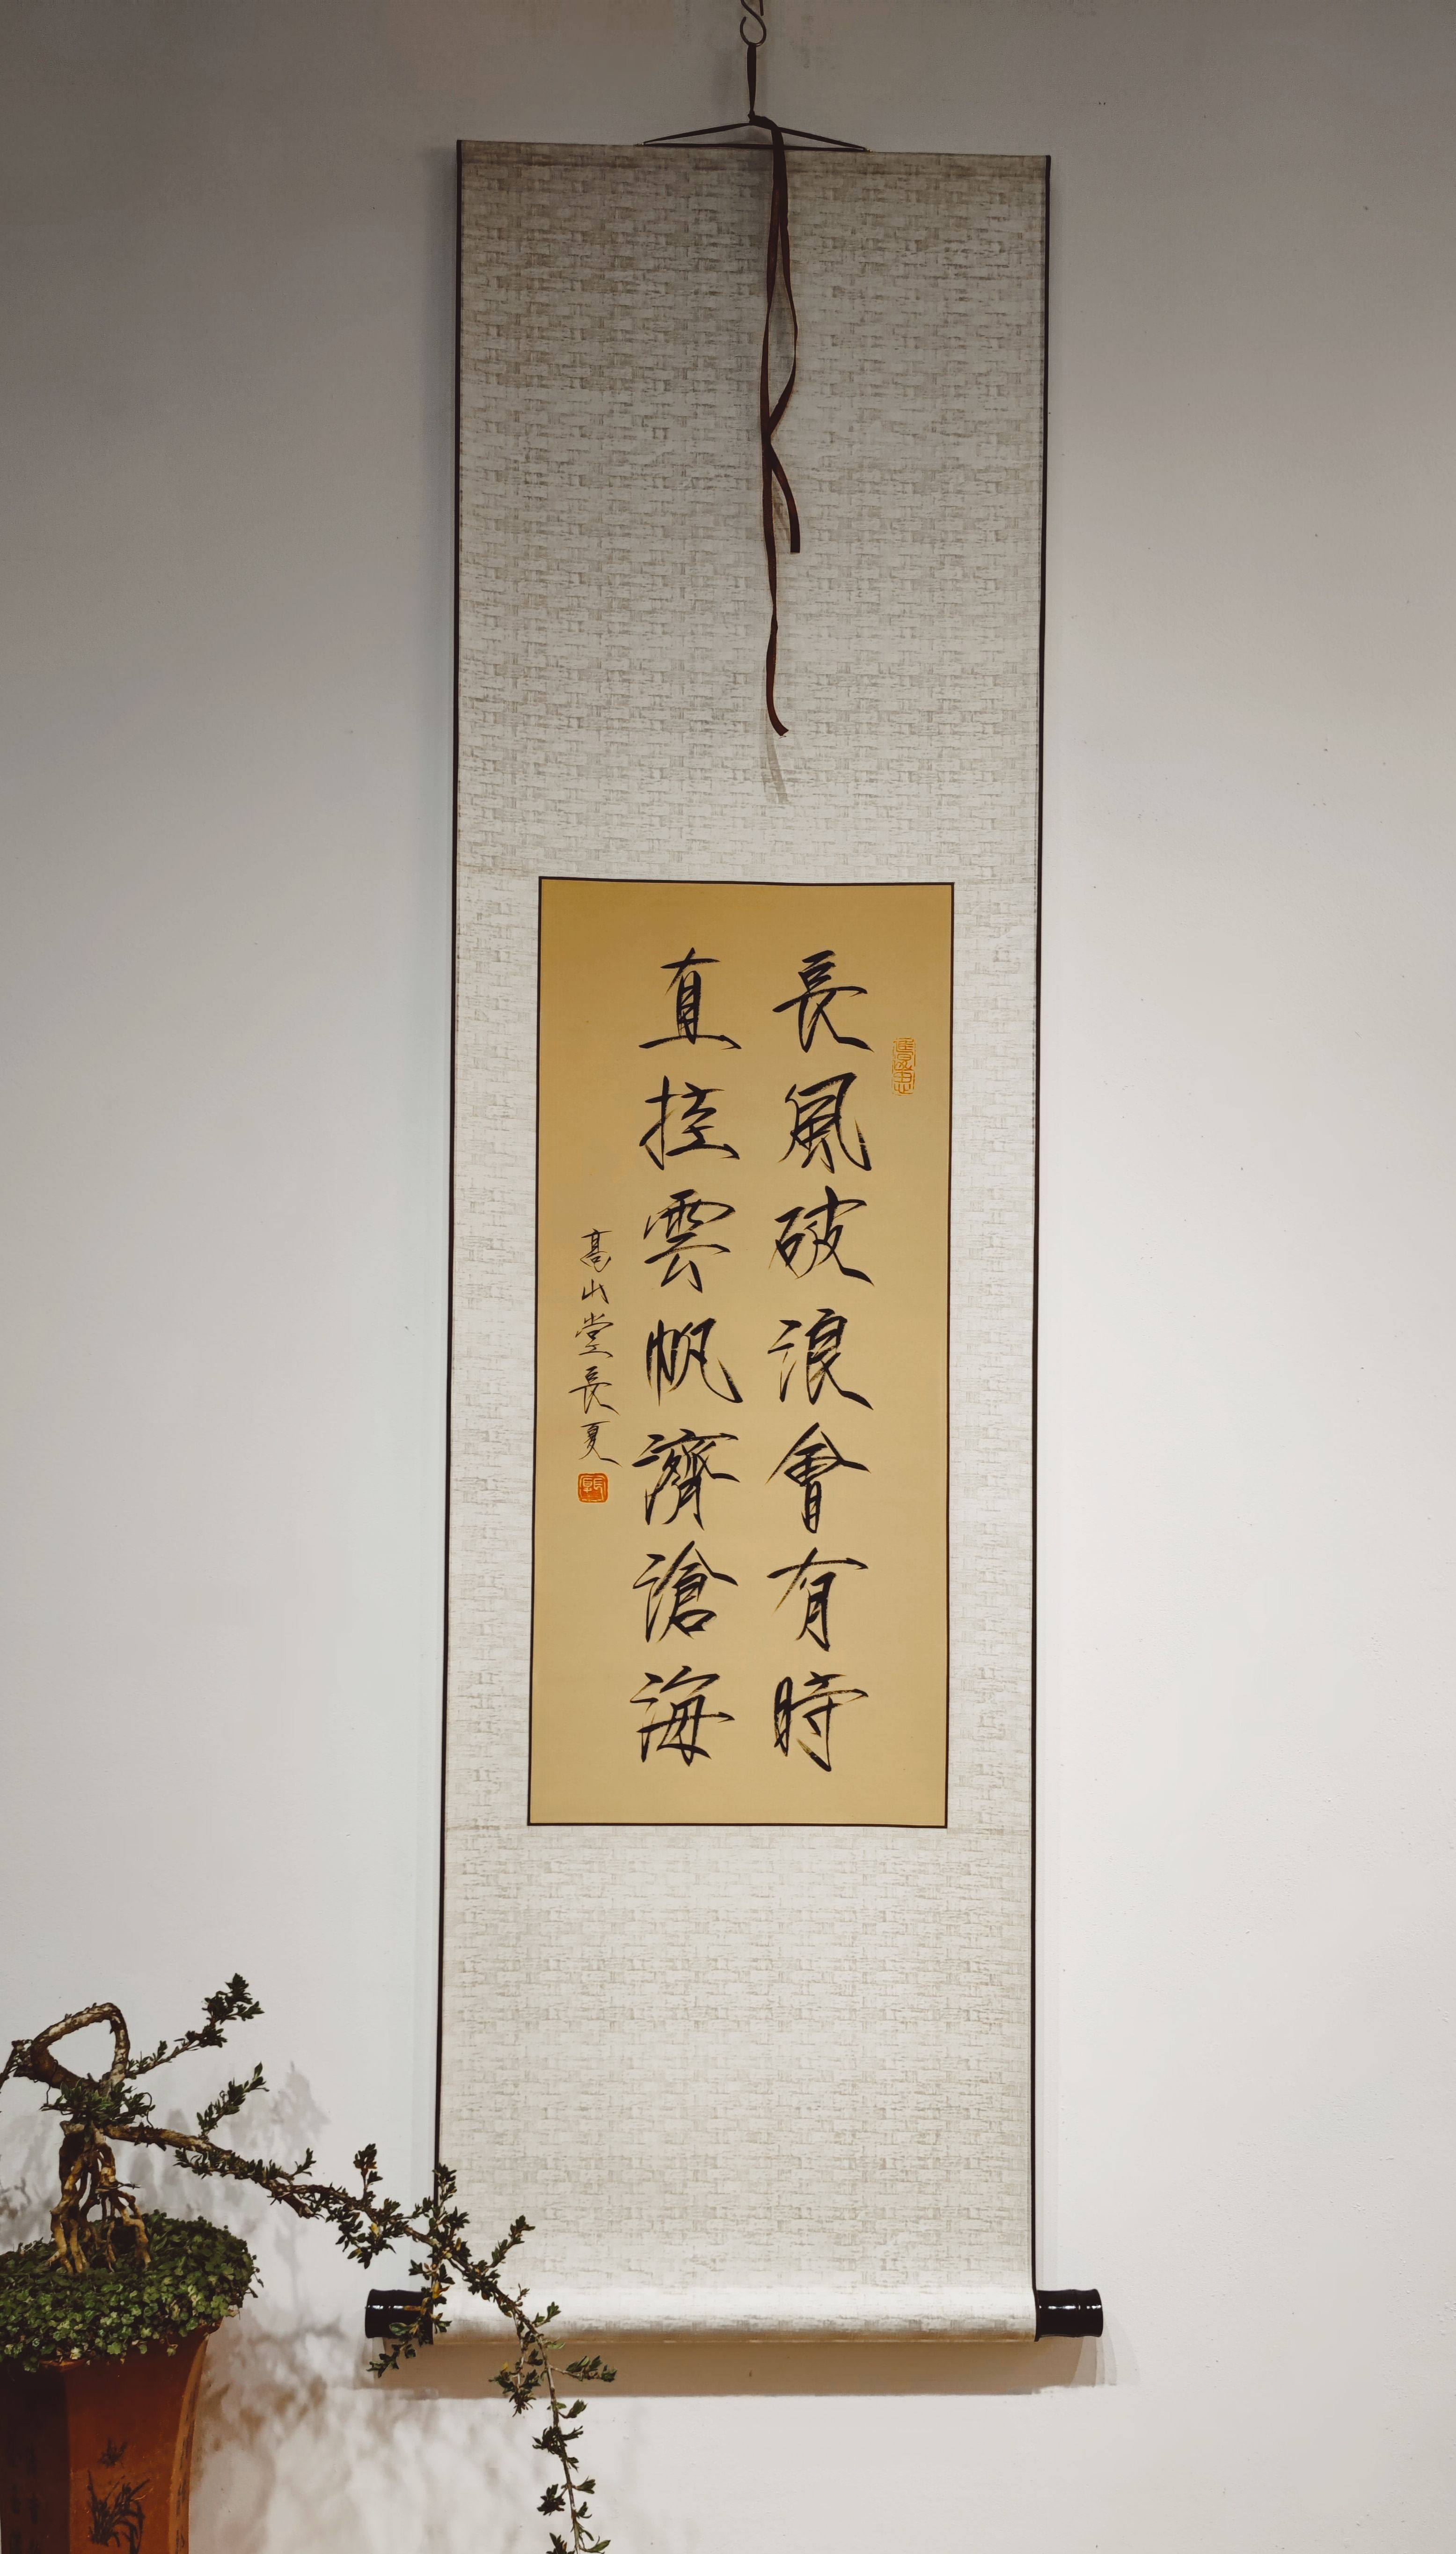 長風破浪會有時
直控雲帆濟滄海
高山堂長夏